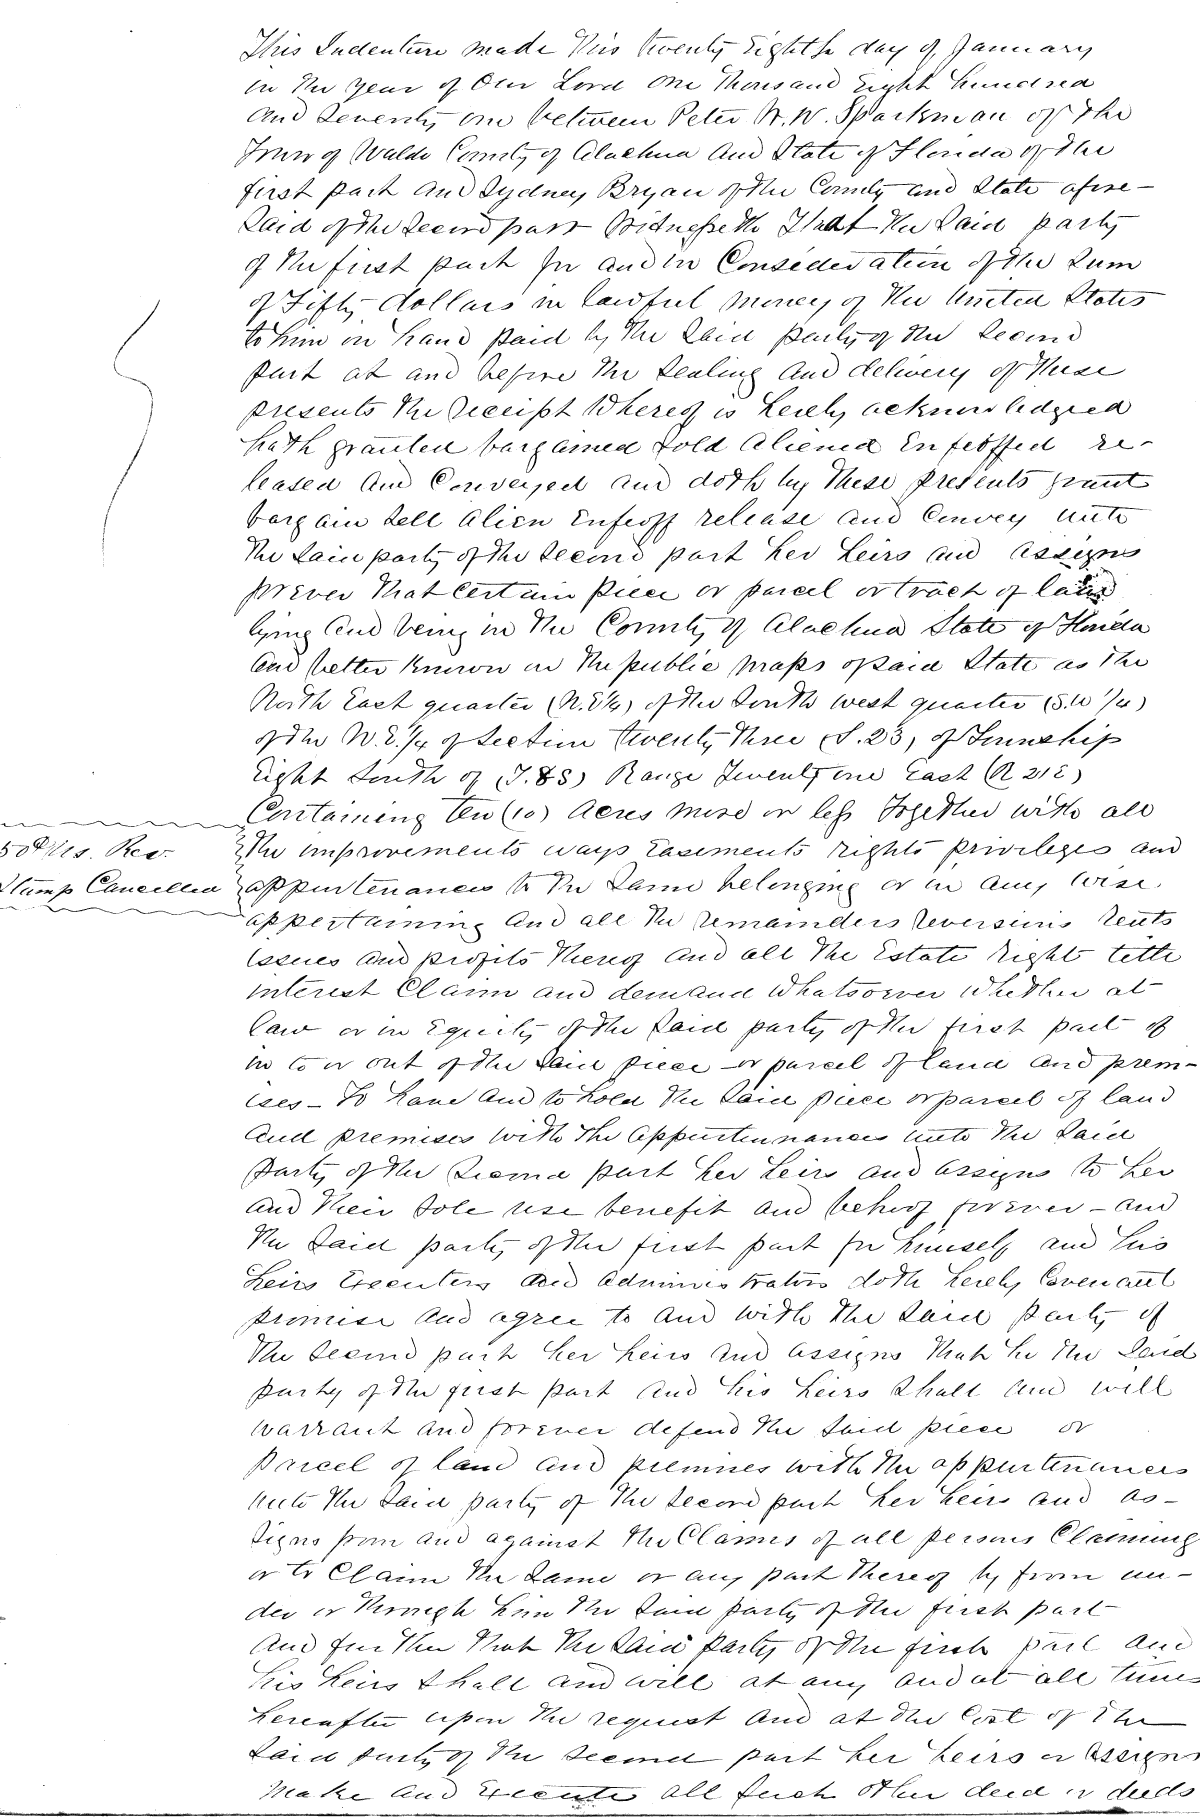 This Indenture made this twenty Eighth day of January
in the year of Our Lord One thousand Eight hundred
and Seventy one between Peter W. W. Sparkman of the
Town of Waldo County of Alachua and State of Florida of the
first part and Sydney Bryan of the County and State afore-
Said of the Second part Witnesseth That the Said party
of the first part for and in Consideration of the Sum
of Fifty dollars in lawful money of the United States
to him in hand paid by the Said party of the Second
part at and before the Sealing and delivery of these
presents the receipt Whereof is hereby acknowledged
hath granted bargained Sold Aliened Enfeoffed re-
leased and Conveyed and doth by these presents grant
bargain Sell Alien Enfeoff release and Convey unto
the Said party of the Second part her heirs and assigns
forever that certain piece or parcel or track of land
lying and being in the County of Alachua State of Florida
and better Known on the public maps of said State as the
North East quarter (N.E ¼) of the South west quarter (S.W ¼)
of the N.E. ¼ of Section twenty three (S.23) of Township
Eight South of (T.8S) Range Twenty one East (R 21E)
Containing ten (10) Acres more or less together with all
50cts. Rev.
the improvements ways Easements rights privileges and
Stamp Cancelled
appurtenances to the Same belonging or in any wise
appertaining and all the remainders reversions rents
issues and profits thereof and all the Estate right title
interest Claim and demand Whatsoever Whether at
law or in Equity of the Said party of the first part of
in to or out of the Said piece or parcel of land and prem-
ises - To have and to hold the Said piece or parcel of land
and premises with the appurtenances unto the Said
party of the Second part her heirs and assigns to her
and their Sole use benefit and behoof forever - and
the Said party of the first part for himself and his
heirs Executors and administrators doth hereby Covenant
promise and agree to and with the Said party of
the Second part her heirs and assigns that he the Said
party of the first part and his heirs Shall and will
warrant and forever defend the Said piece or
parcel of land and premises with the appurtenances
unto the Said party of the Second part her heirs and as-
signs from and against the Claims of all persons Claiming
or to Claim the Same or any part thereof by from un-
der or through him the Said party of the first part
and further that the Said party of the first part and
his heirs Shall and will at any and at all times
hereafter upon the request and at the Cost of the
Said party of the Second part her heirs or assigns
make and Execute all Such other deed or deeds